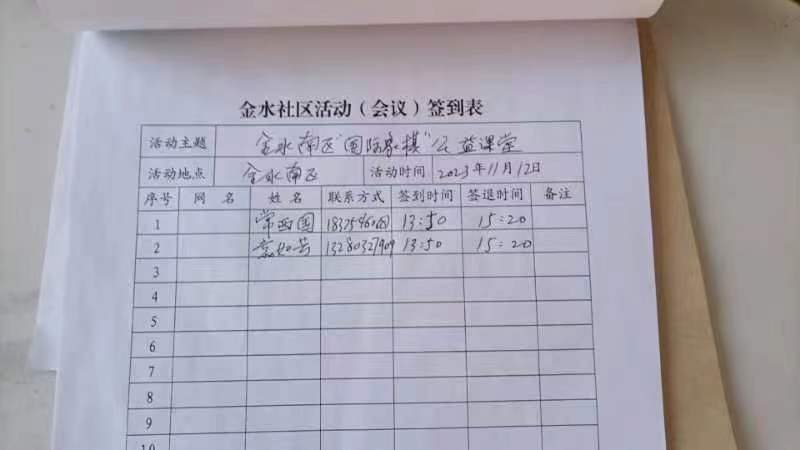 金水社区活动（会议）签到表
活动主题 金水南区"国际象棋"公益课堂
活动地点 金水南区 活动时间 2023年11月12日
序号 网名 姓名 联系方式 签到时间 签退时间 备注
1 常西国 13:50 15:20
2 13280327909 13:50 15:20
3
4
5
6
7
8
9
10